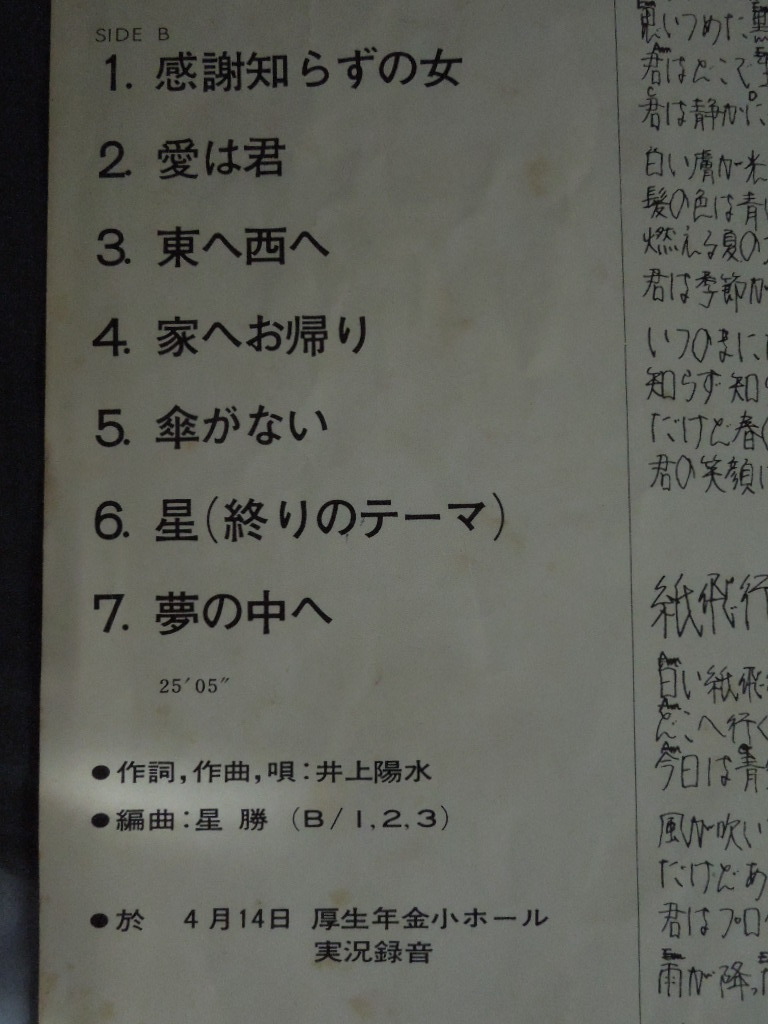 SIDE B
1. 感謝知らずの女
2. 愛は君
3. 東へ西へ
4. 家へお帰り
5. 傘がない
6. 星(終りのテーマ)
7. 夢の中へ
25′05″
●作詞,作曲,唄:井上陽水
●編曲:星 勝 (B/1,2,3)
●於 4月14日 厚生年金小ホール
実況録音
思いつめた
君はどこで
君は静かに
白い膚が光
髪の色は青
燃える夏の
君は季節が
いつのまに
知らず知
だけど春
君の笑顔
紙飛行
白い紙飛
どこへ行く
今日は青
風が吹い
だけどあ
君はプロ
雨が降っ